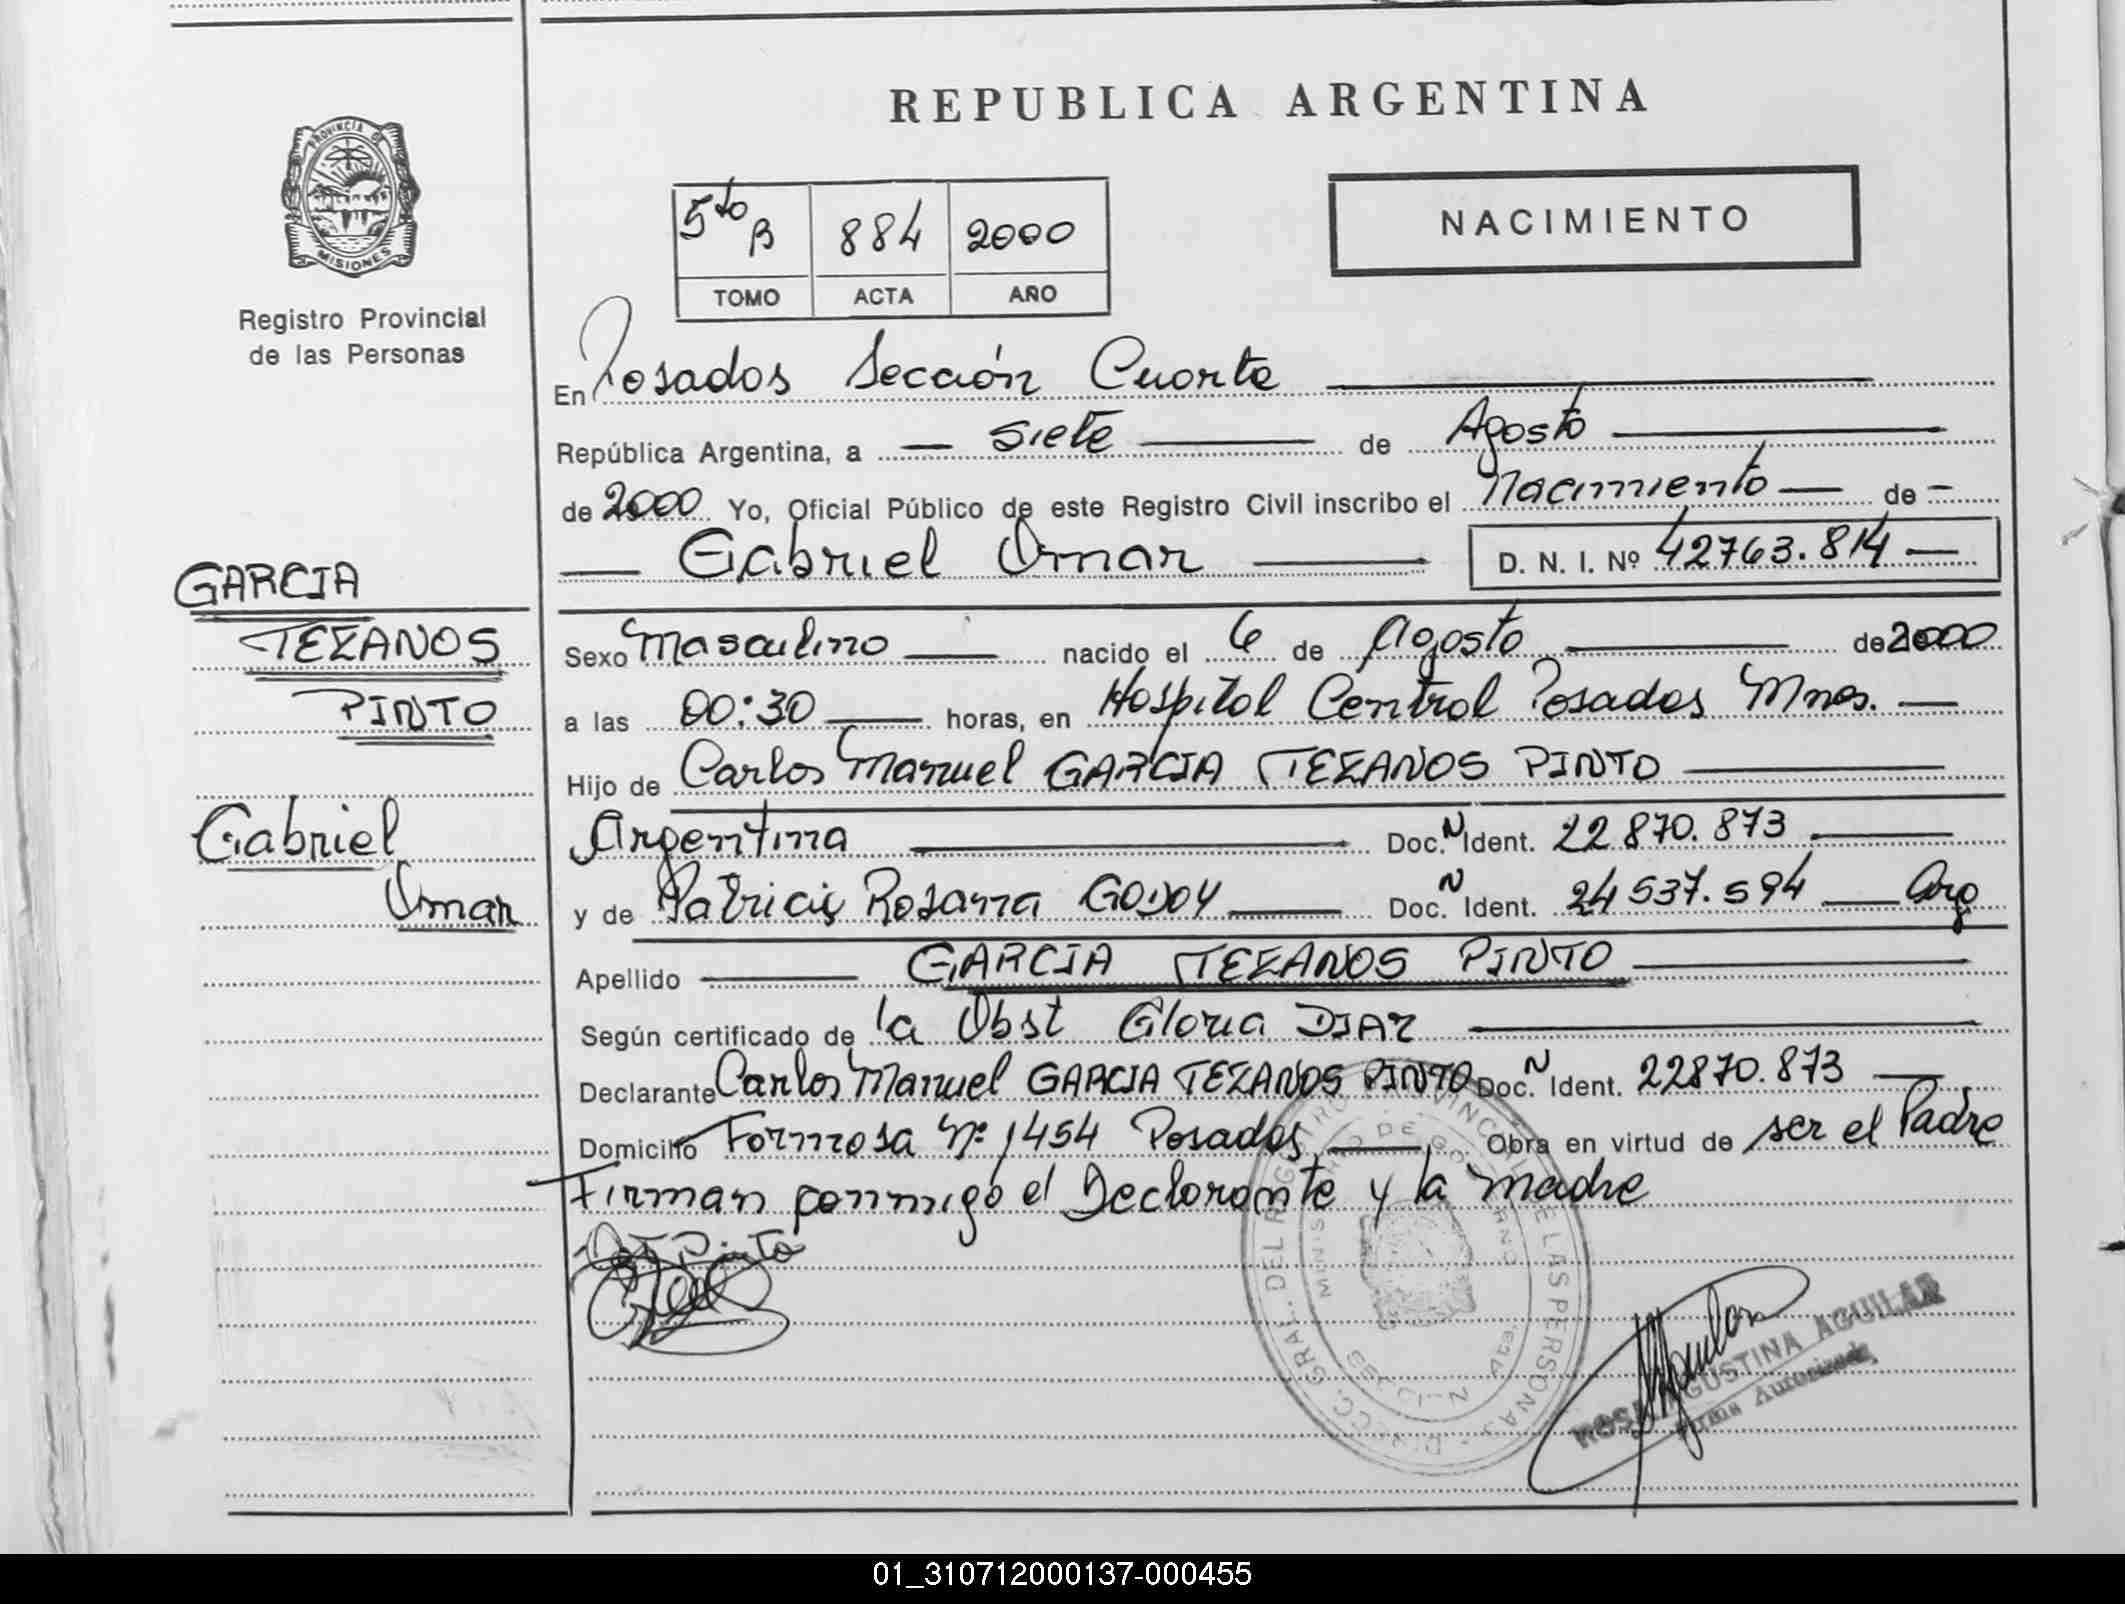 REPUBLICA ARGENTINA
PROVINCIA DE
MISIONES
Registro Provincial
de las Personas
5to B 884 2000
TOMO ACTA AÑO
NACIMIENTO
En Posadas Sección Cuarta
República Argentina, a siete de Agosto
de 2000 Yo, Oficial Público de este Registro Civil inscribo el Nacimiento de
Gabriel Omar D. N. I. Nº 42763.814
GARCIA
TEZANOS
PINTO
Gabriel
Omar
Sexo Masculino nacido el 6 de Agosto de 2000
a las 00:30 horas, en Hospital Central Posadas Mnes.
Hijo de Carlos Manuel GARCIA TEZANOS PINTO
Argentina Doc. N Ident. 22.870.873
y de Patricia Rosana GODOY Doc. N Ident. 24537.594 Arg
Apellido GARCIA TEZANOS PINTO
Según certificado de la Obst Gloria DIAZ
Declarante Carlos Manuel GARCIA TEZANOS PINTO Doc. N Ident. 22870.873
Domicilio Formosa Nº 1454 Posadas Obra en virtud de ser el Padre
Firman conmigo el Declarante y la madre
Pinto
DIRECC. GRAL. DEL REGISTRO PROVINCIAL DE LAS PERSONAS
MINISTERIO DE GOBIERNO
SECCION 4ta.
ROSA AGUSTINA AGUILAR
Firma Autorizada
01_310712000137-000455